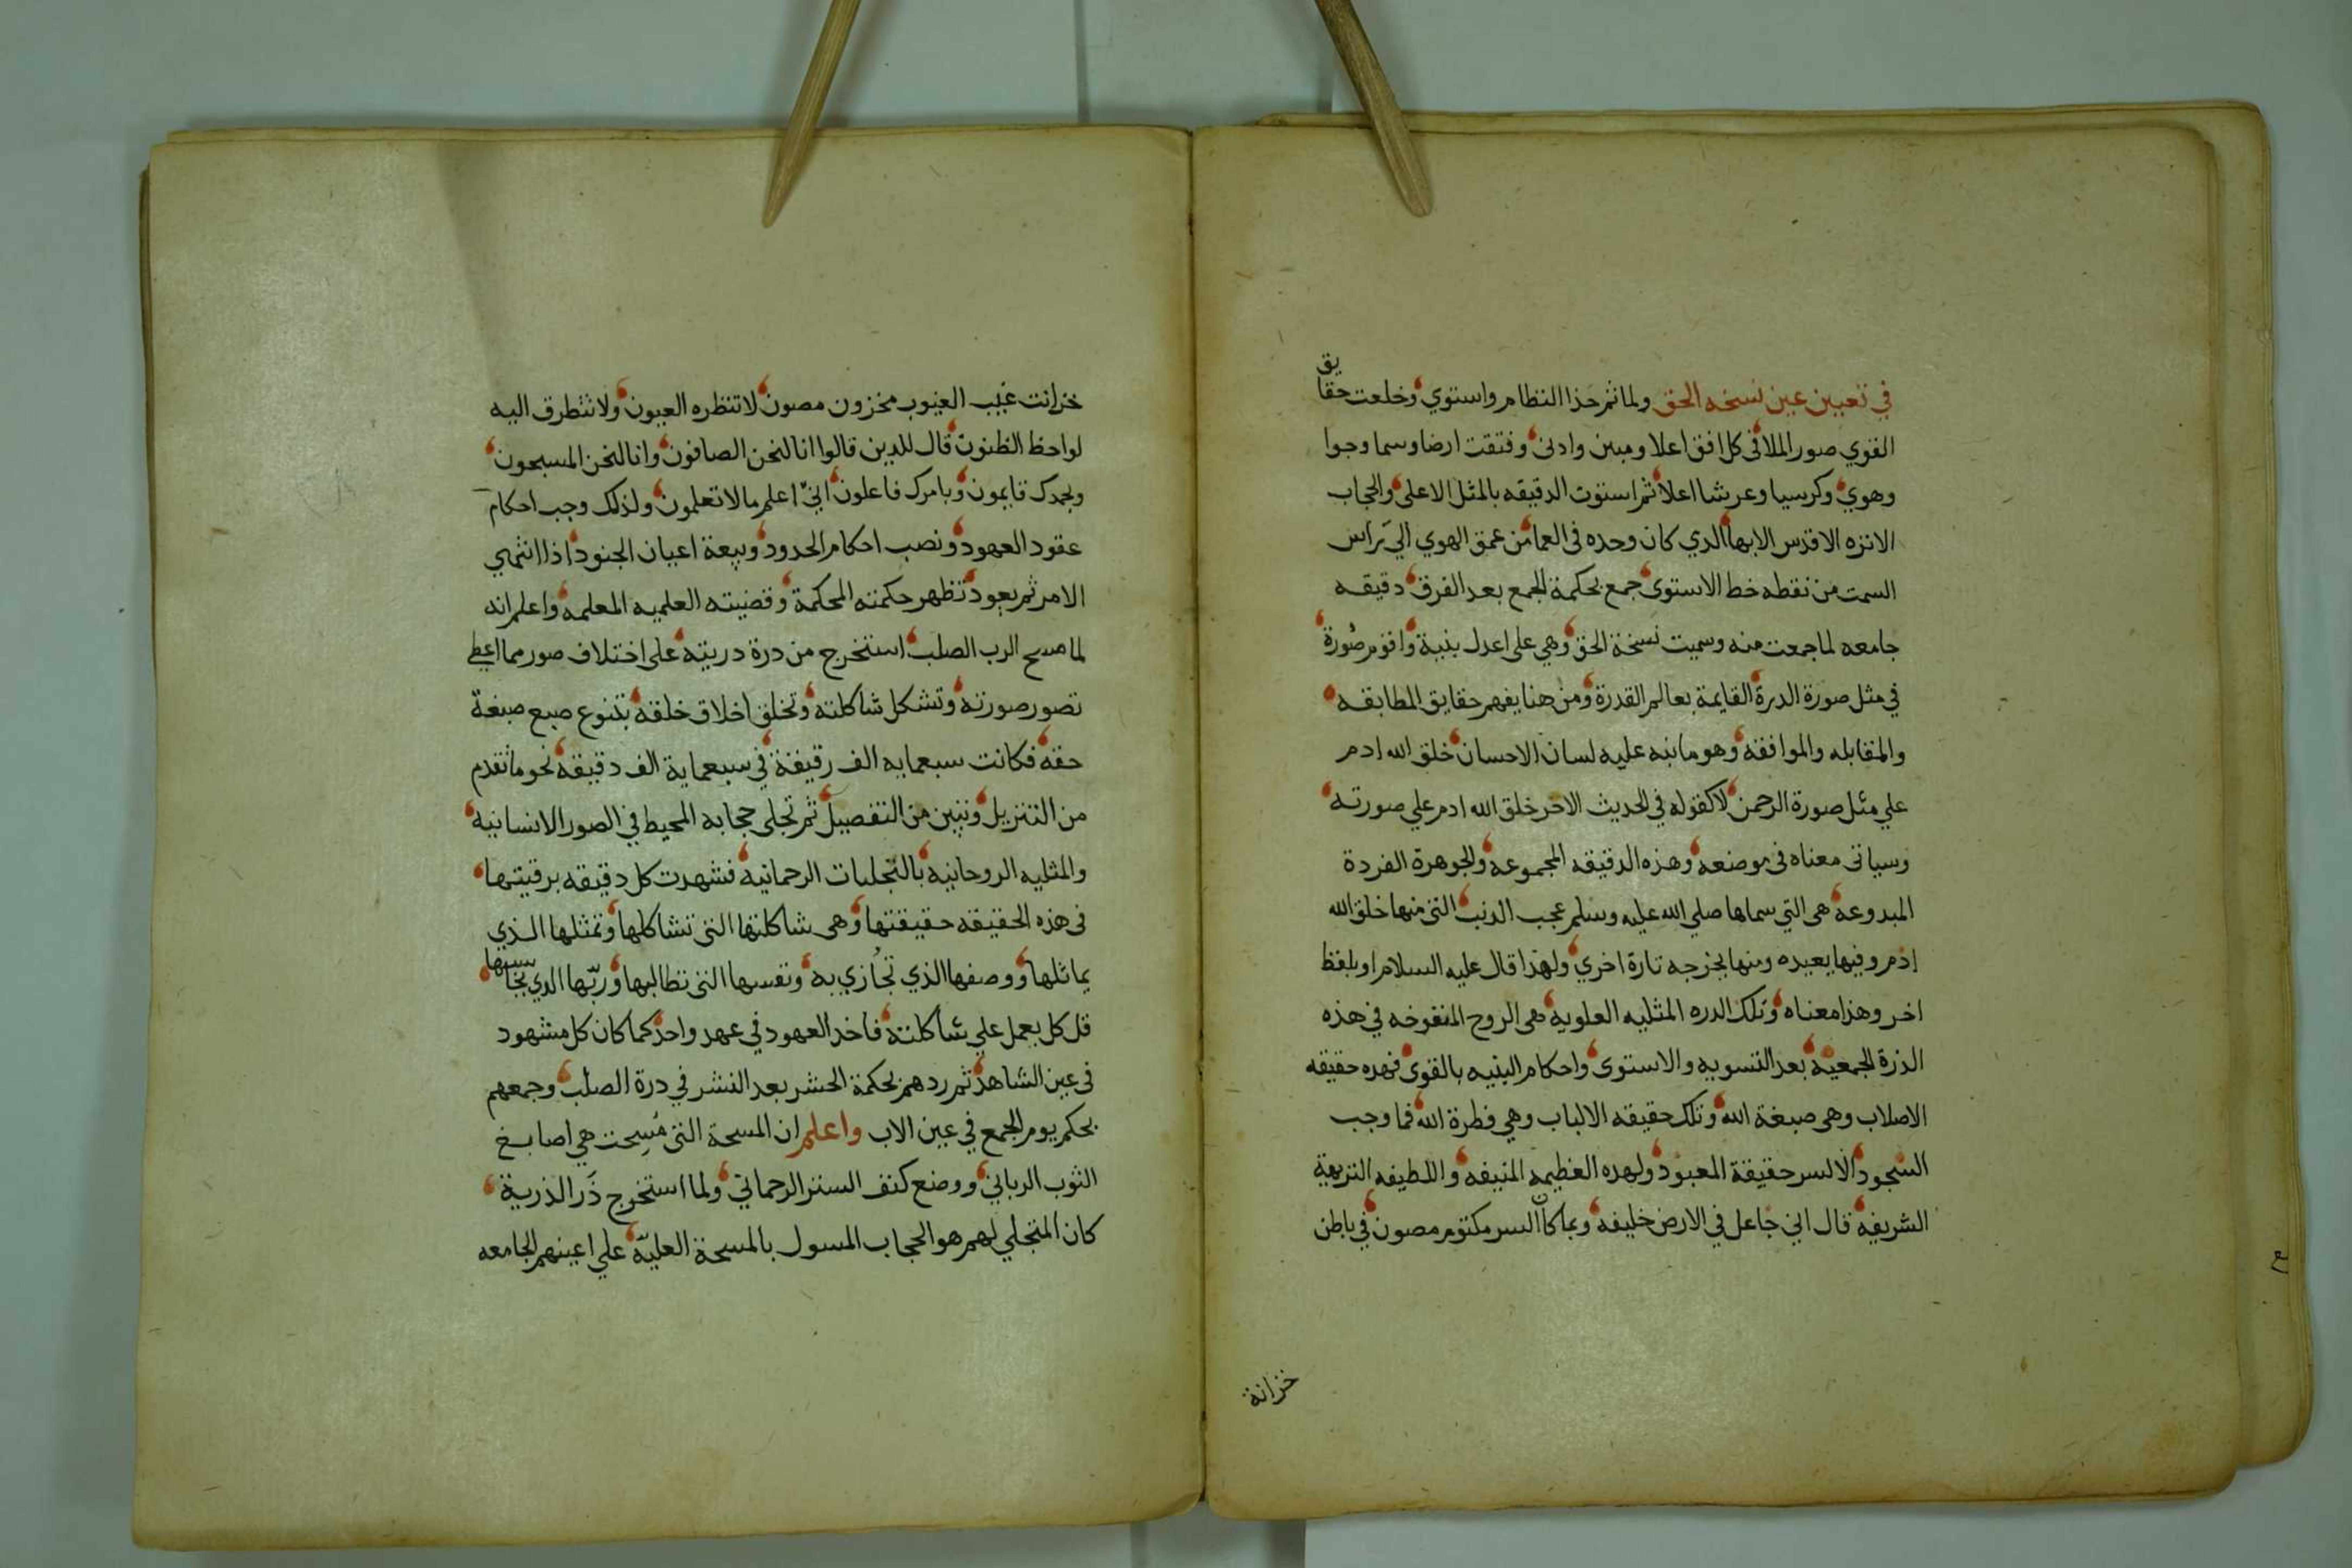 في تعيين عين نسخه الحق ولما تم هذا النظام واستوي وخلعت حقايق
القوي صور الملا في كل افق اعلا ومبين وادنى وفتقت ارضا وسما وجوا
وهوي وكرسيا وعرشا اعلا ثم استوت الدقيقه بالمثل الاعلى والحجاب
الانزه الاقدس الابها الدي كان وحده في العما من عمق الهوي الي راس
السمت من نقطه خط الاستوى جمع بحكمة الجمع بعد الفرق دقيقه
جامعه لما جمعت منه وسميت نسخة الحق وهي على اعدل بنية واقوم صورة
في مثل صورة الدرة القايمة بعالم القدرة ومن هنا يفهم حقايق المطابقه
والمقابله والموافقه وهو ما نبه عليه لسان الاحسان خلق الله ادم
علي مثل صورة الرحمن لا كقوله في الحديث الاخر خلق الله ادم علي صورته
وسياتى معناه فى موضعه وهذه الدقيقه المجموعه والجوهرة الفردة
المبدوعة هى التي سماها صلي الله عليه وسلم عجب الدنب التى منها خلق الله
ادم وفيها يعيده ومنها يخرجه تارة اخري ولهذا قال عليه السلام او بلفظ
اخر وهذا معناه وتلك الدره المثليه العلويه هى الروح المنفوخه في هذه
الذرة الجمعية بعد التسويه والاستوى واحكام البنيه بالقوى فهده حقيقه
الاصلاب وهى صبغة الله وتلك حقيقه الالباب وهي فطرة الله فما وجب
السجود الا لسر حقيقة المعبود ولهده العظيمه المنيفه واللطيفه النزيهة
الشريفه قال اني جاعل في الارض خليفه وبما كان السر مكتوم مصون في باطن
خزانة
خزانت غيب الغيوب مخزون مصون لا تنظره العيون ولا تتطرق اليه
لواحظ الظنون قال للدين قالوا انا لنحن الصافون وانا لنحن المسبحون
وبحمدك قايمون وبامرك فاعلون انيّ اعلم ما لا تعلمون ولذلك وجب احكام
عقود العهود ونصب احكام الحدود وبيعة اعيان الجنود اذا انتهي
الامر ثم يعود تظهر حكمته المحكمة وقضيته العلميه المعلمه واعلم انه
لما مسح الرب الصلب استخرج من درة دريته على اختلاف صور مما اعطي
تصور صورته وتشكل شاكلته وتخلق اخلاق خلقه بتنوع صبغ صبغة
حقه فكانت سبعمايه الف رقيقة في سبعماية الف دقيقه نحو ما تقدم
من التنزيل وتبين من التفصيل ثم تجلى حجابه المحيط في الصور الانسانيه
والمثليه الروحانيه بالتجليات الرحمانيه فشهدت كل دقيقه برقيتها
فى هذه الحقيقه حقيقتها وهى شاكلتها التى تشاكلها وتمثلها الذي
يماثلها ووصفها الذي تجازي به ونفسها التى تطالبها وربّها الدي
قل كل يعمل علي شاكلته فاخد العهود في عهد واحد كما كان كل مشهود
فى عين الشاهد ثم ردهم بحكمة الحشر بعد النشر في درة الصلب وجمعهم
بحكم يوم الجمع في عين الاب واعلم ان المسحة التى مُسِحت هي اصابغ
الثوب الرباني ووضع كنف الستر الرحماني ولما استخرج ذَر الذرية
كان المتجلي لهم هو الحجاب المسول بالمسحة العليّة علي اعينهم الجامعه